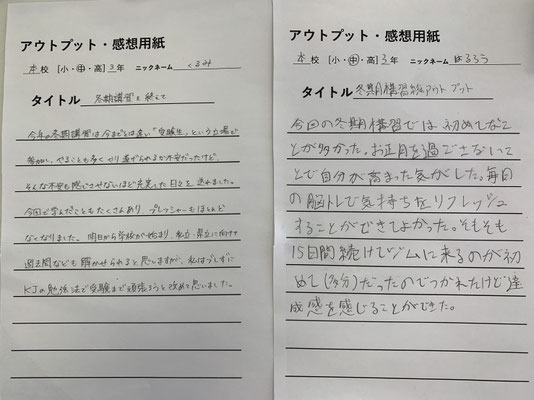 アウトプット・感想用紙
本校 [小・中・高] 3年 ニックネーム くるみ
タイトル 冬期講習を終えて
今年の冬期講習は今までとは違い"受験生"という立場で
参加し、やることも多くやり遂げられるか不安だったけど、
そんな不安も感じさせないほど充実した日々を送れました。
今回で学んだこともたくさんあり、プレッシャーもほとんど
なくなりました。明日から学校が始まり、私立・県立に向けて
過去問なども解かせられると思いますが、私はブレずに
KJの勉強法で受験まで頑張ろうと改めて思いました。
アウトプット・感想用紙
本校 [小・中・高] 3年 ニックネーム はるろう
タイトル 冬期講習総アウトプット
今回の冬期講習では初めてなこ
とが多かった。お正月を過ごさないこ
とで自分が高まった気がした。毎日
の脳トレで気持ちをリフレッシュ
することができてよかった。そもそも
15日間続けてジムに来るのが初
めて(多分)だったのでつかれたけど達
成感を感じることができた。